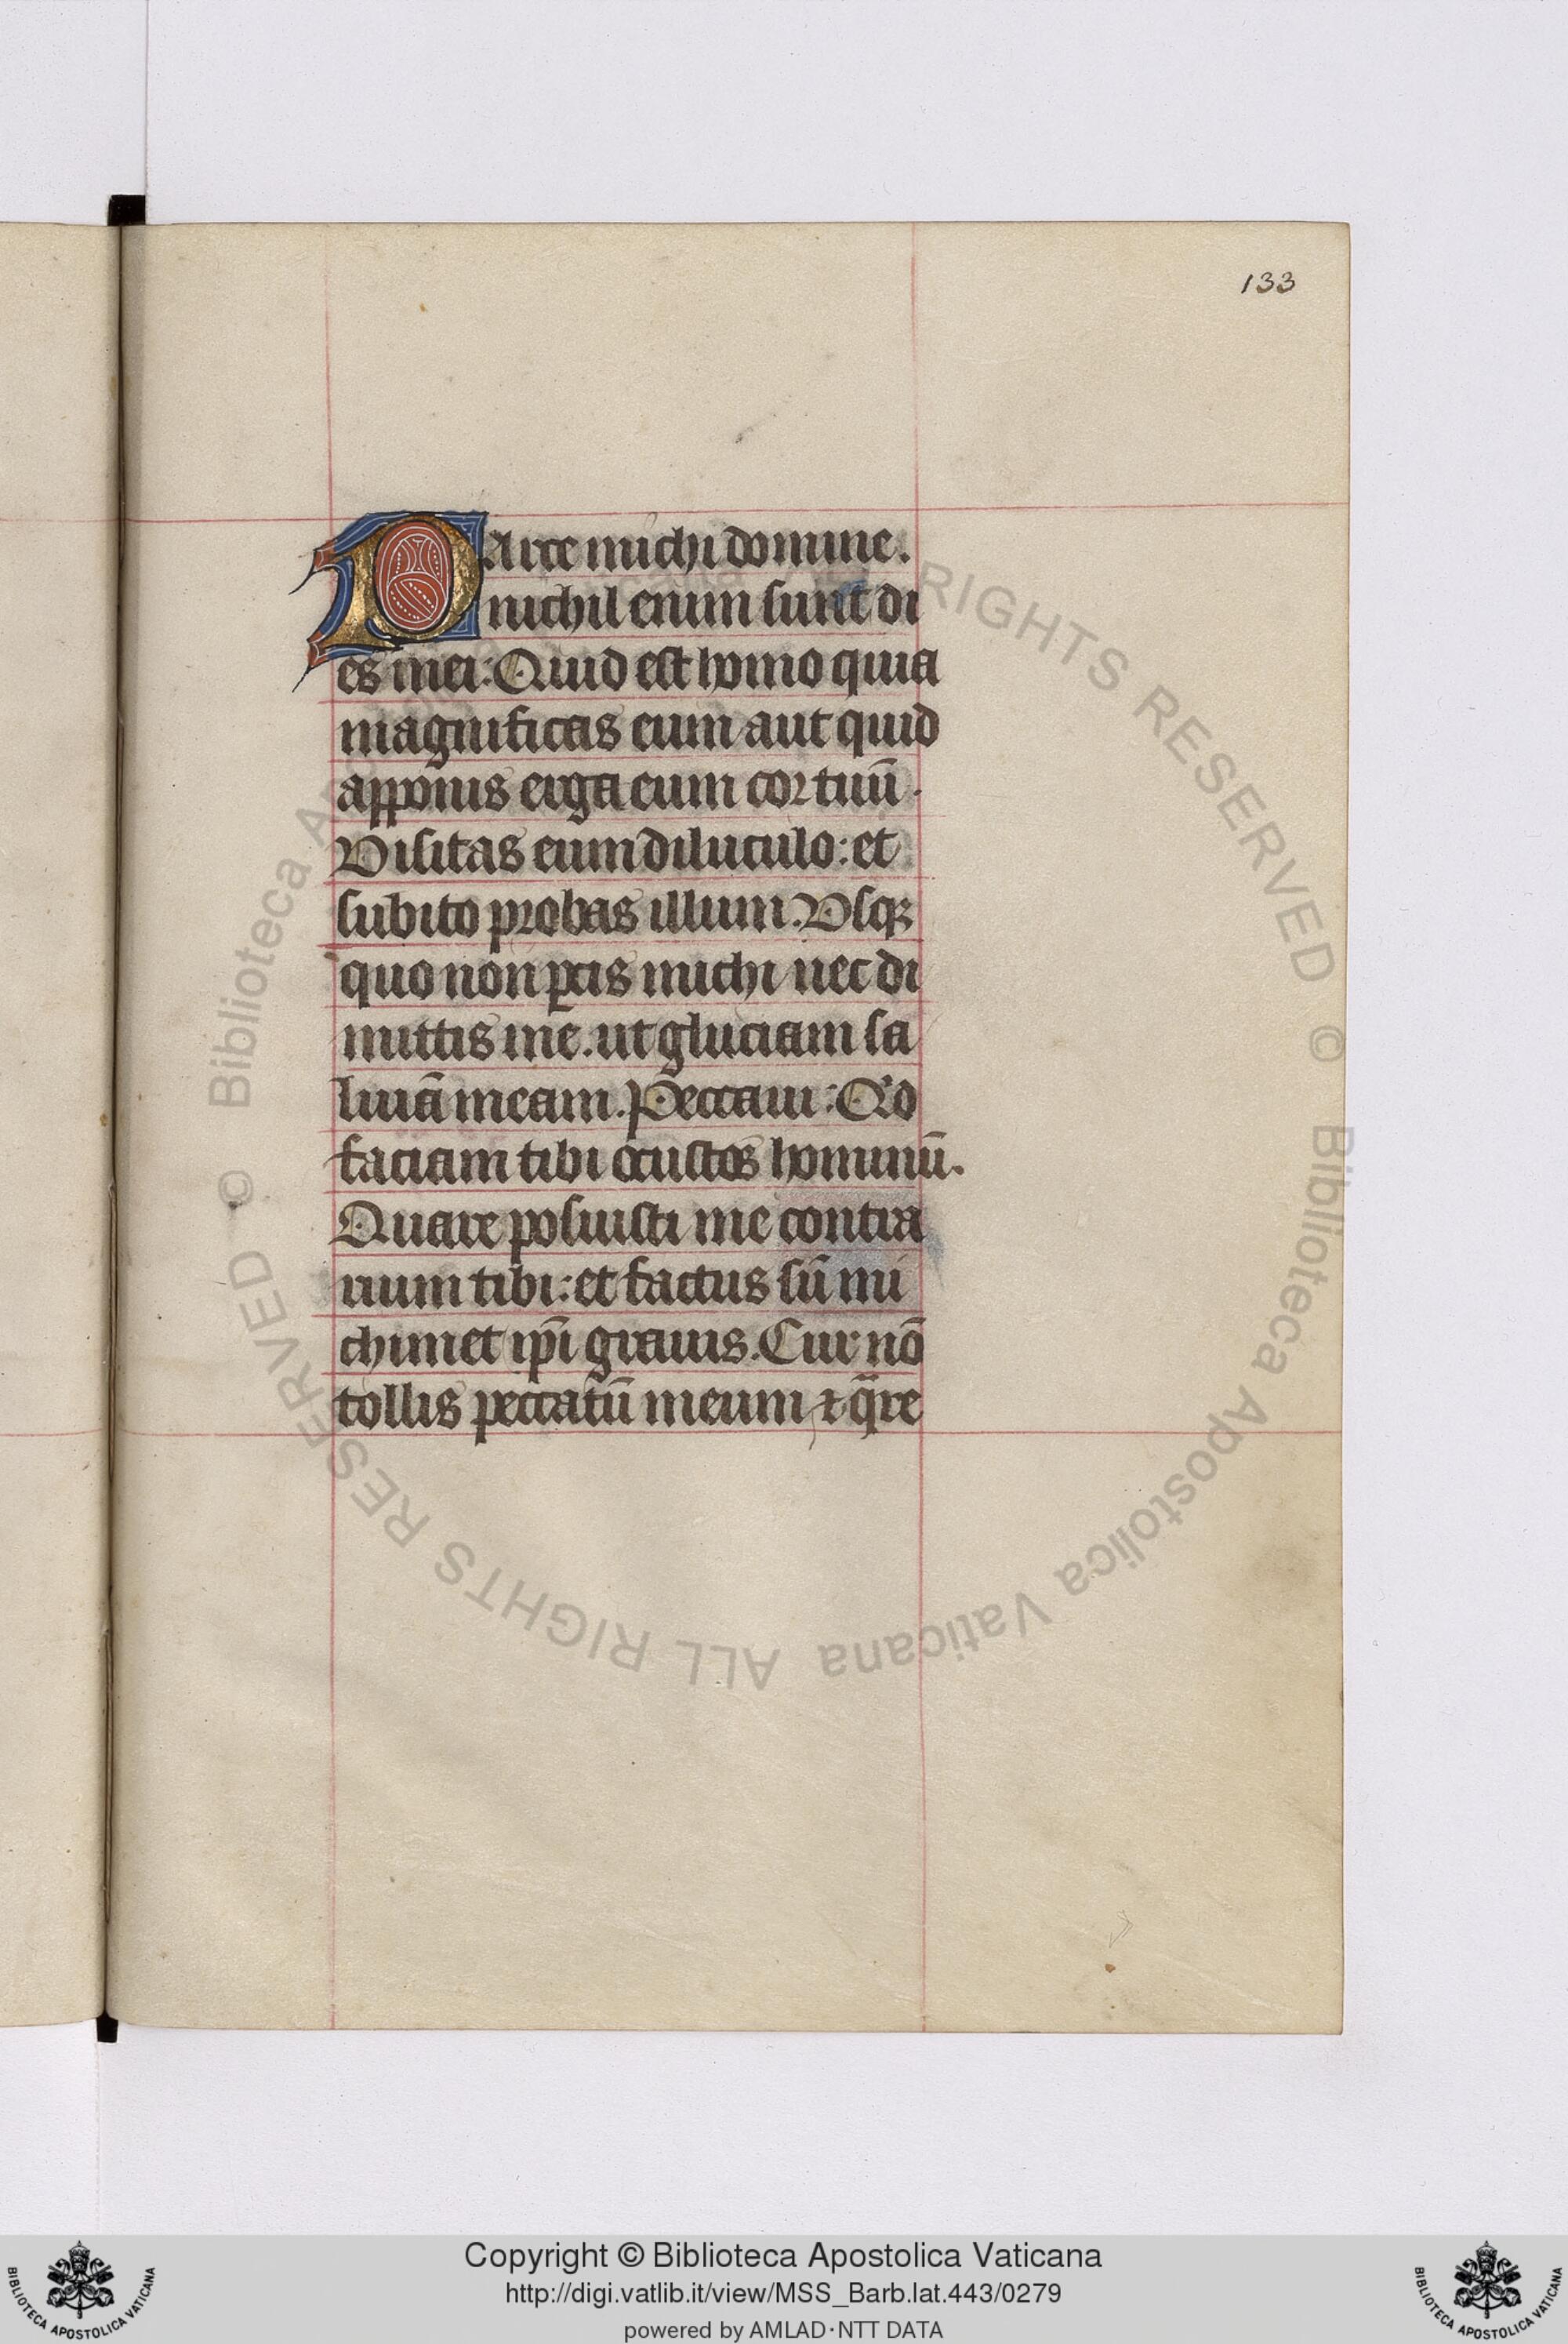 133
PArce michi domine.
nichil enim sunt di
es mei: Quid est homo quia
magnificas eum aut quid
apponis erga eum cor tuū.
Visitas eum diluculo: et
subito probas illum. Vsqꝫ
quo non ꝑcis michi nec di
mittis me. ut gluciam sa
liuā meam. Peccaui: Qͥd
faciam tibi o custos hominū.
Quare posuisti me contra
rium tibi: et factus sū mi
chimet ip̄i grauis. Cur nō
tollis peccatū meum ⁊ qᷓre
© Biblioteca Apostolica Vaticana ALL RIGHTS RESERVED
© Biblioteca Apostolica Vaticana ALL RIGHTS RESERVED
Copyright © Biblioteca Apostolica Vaticana
http://digi.vatlib.it/view/MSS_Barb.lat.443/0279
powered by AMLAD·NTT DATA
BIBLIOTECA APOSTOLICA VATICANA
BIBLIOTECA APOSTOLICA VATICANA